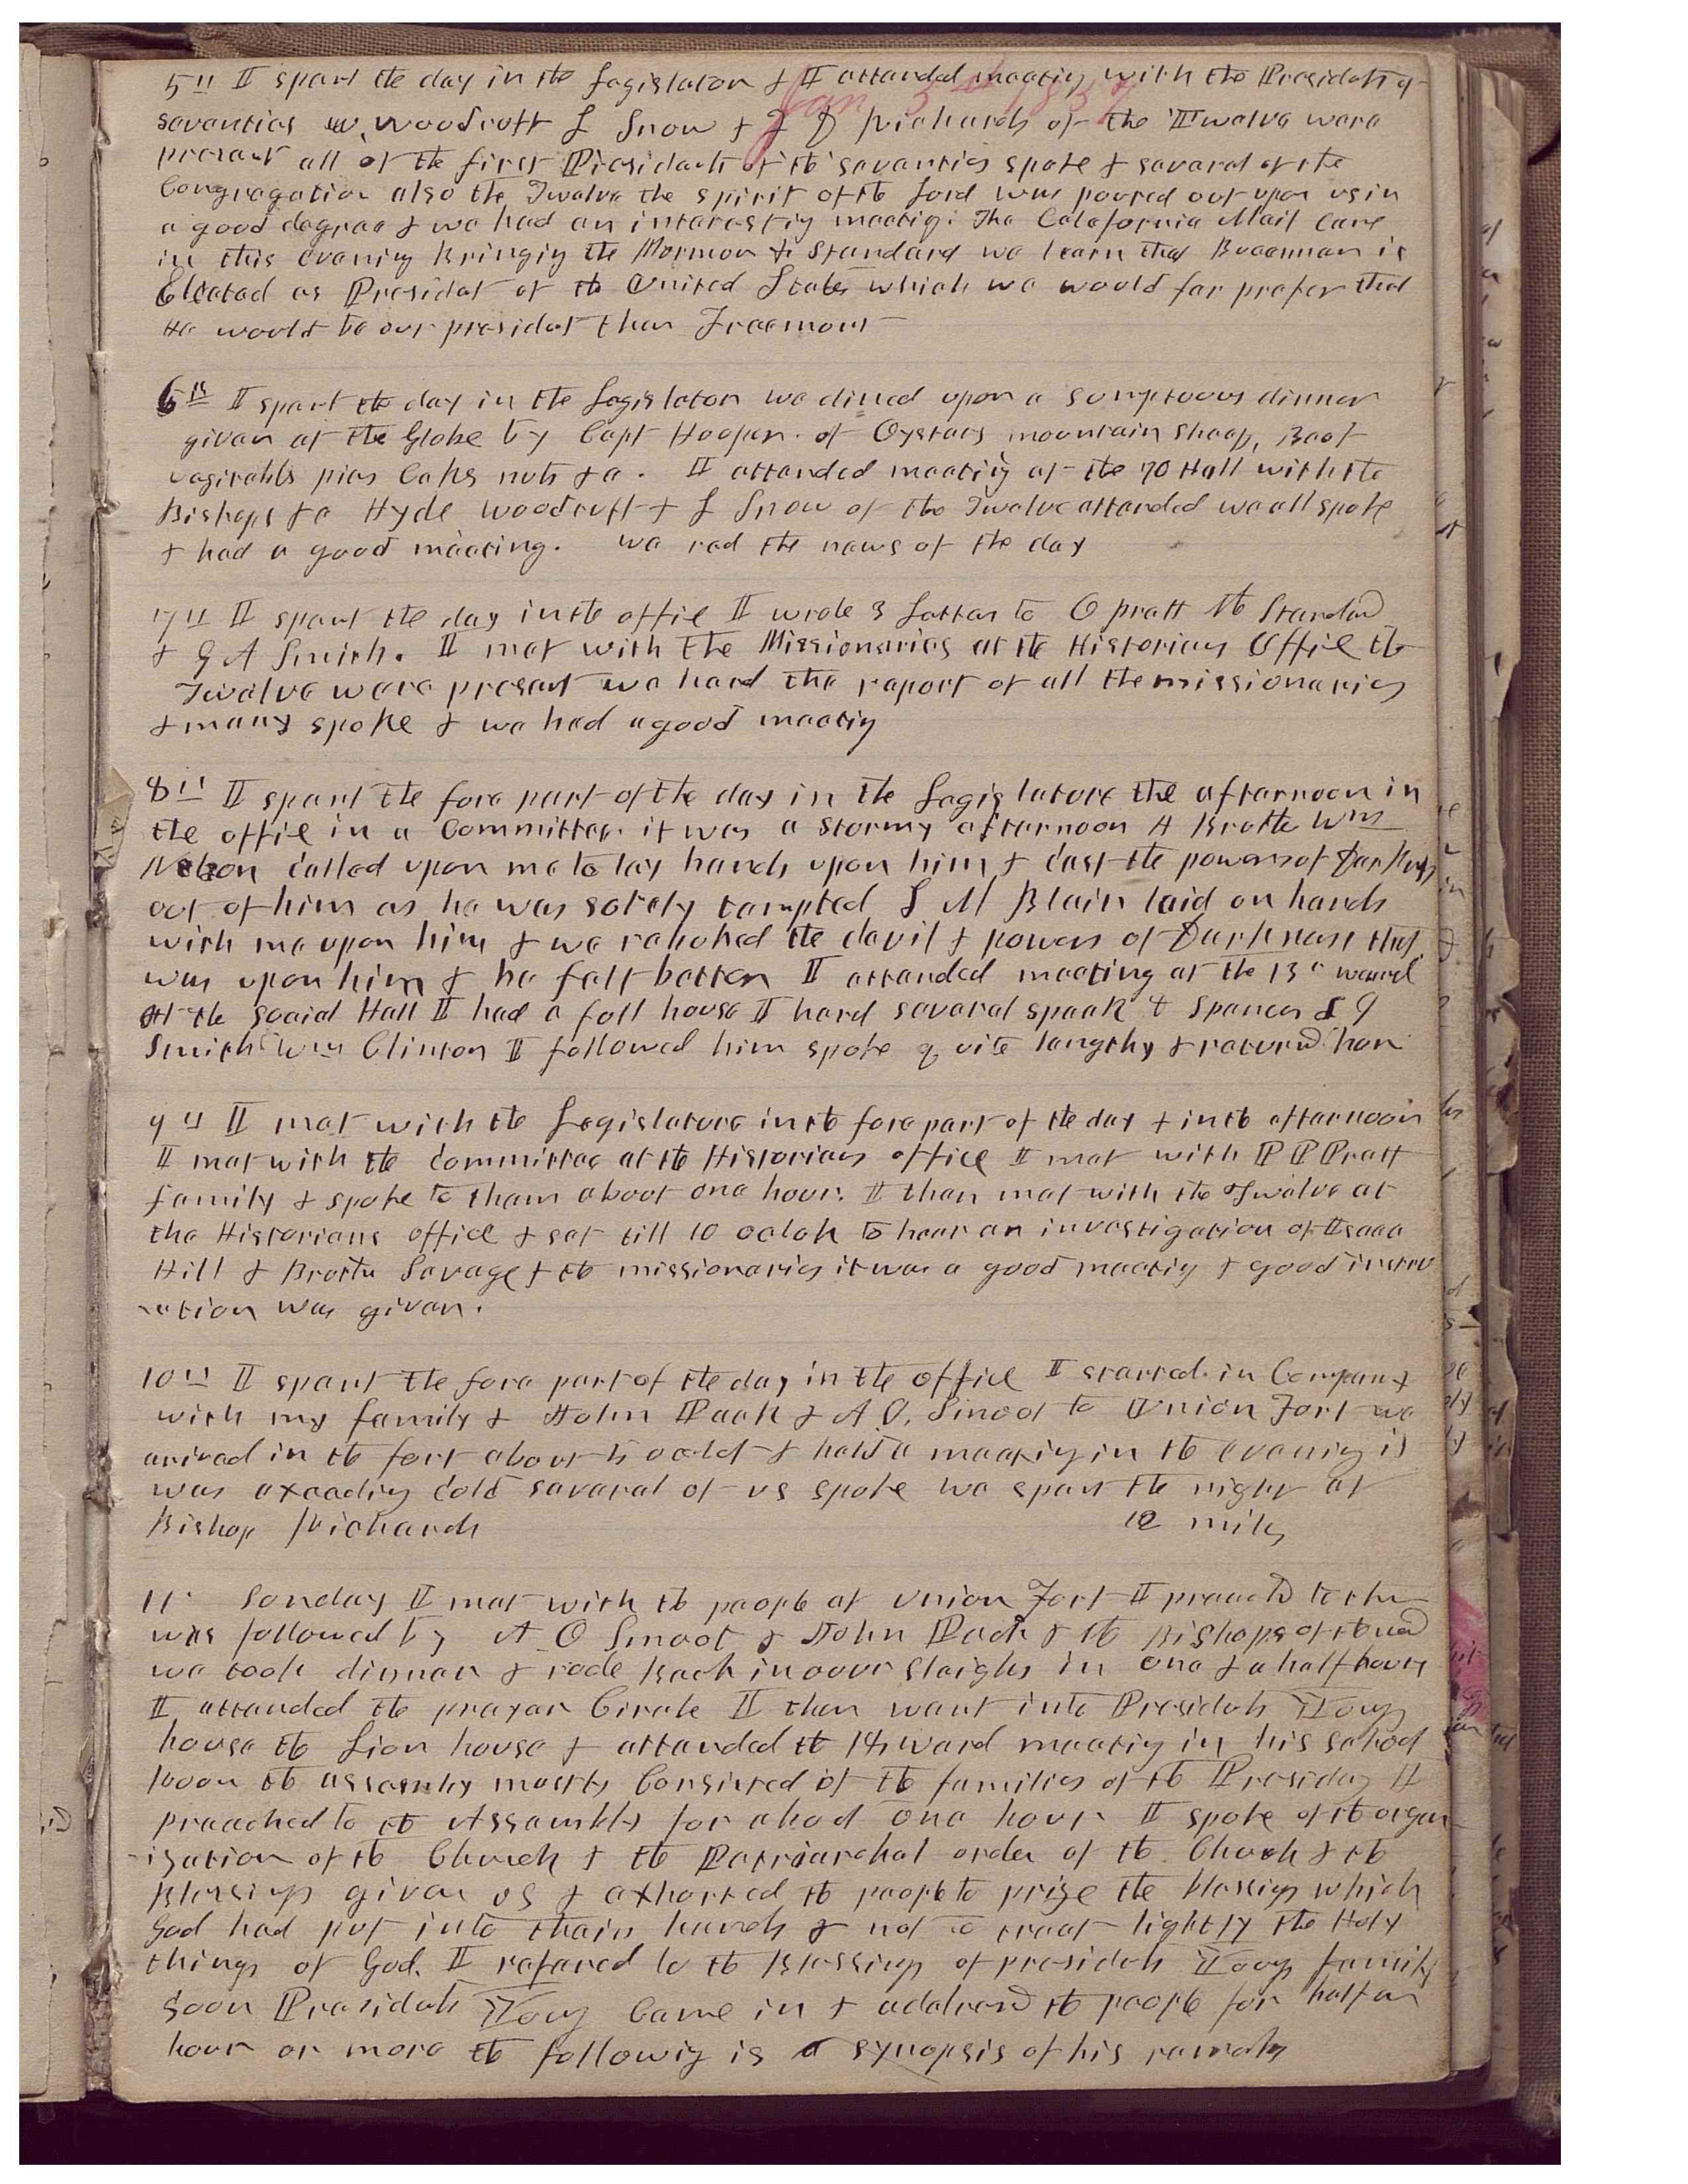 5th I spent the day in the Legislator & I attended meeting with the Presidets of
Jan 5th 1857
seventies W. Woodruff L Snow & F D Richards of the Twelve were
present all of the first Presidents of the seventies spoke & several of the
Congregation also the Twelve the spirit of the Lord was poured out upon us in
a good degree & we had an interestig meetig. The Calefornia Mail Came
in this evening Bringig the Mormon & Standard we learn that Bucannan is
Elected as Presidet of the United States which we would far prefer that
He would be our presidet than Freemont
6th I spent the day in the Legislaton we dined upon a sumptuous dinner
given at the Globe by Capt Hooper. of Oysters mountain sheep, Beef
vegitables pies Cakes nuts &c. I attended meetig at the 70 Hall with the
Bishops &c Hyde Woodruff & L Snow of the Twelve attended we all spoke
& had a good meeting. we red the news of the day
7th I spent the day in the offie I wrote 3 Letters to O pratt the Standard
& G A Smith. I met with the Missionaries at the Historians Office the
Twelve were present we hard the report of all the missionaries
& many spoke & we had a good meetig
8th I spent the fore part of the day in the Legislature the afternoon in
the offie in a Committee. it was a stormy afternoon A Brother Wm
Nelson called upon me to lay hands upon him & cast the powers of Darkness
out of him as he was sorely tempted L M Blain laid on hands
with me upon him & we rebuked the devil & powers of Darkness that
was upon him & he felt better I attended meeting at the 13th ward
At the Social Hall I had a full house I hard several speak & Spencer L G
Smith Wm Clinton I followed him spoke quite lengthy & returned hom
9th I met with the Legislature in the fore part of the day & in the afternoon
I met with the committee at the Historians office I met with P P Pratt
family & spoke to them about one hour. I then met with the Twelve at
the Historians office & sat till 10 oclok to hear an investigation of Isaac
Hill & Brother Savage & the missionaries it was a good meetig & good instru
-ction was given.
10th I spent the fore part of the day in the office I started in Company
with my family & John Pack & A O. Smoot to Union Fort we
arived in the fort about 5 oclok & held a meetig in the evening it
was exceedig cold several of us spoke we spent the night at
Bishop Richards 12 miles
11. Sunday I met with the people at Union Fort I preached to them
was followed by A O Smoot & John Pack & the Bishops of the ward
we took dinner & rode back in our sleighs in one & a half hours
I attended the prayer Circle I then went into Presidet Youngs
house the Lion house & attended the 14 ward meetig in his school
room the assembly mostly Consisted of the families of the Presidency I
preached to the Assembly for about one hour I spoke of the organ
-ization of the Church & the Patriarchal order of the Church & the
Blessings given us & exhorted the people to prize the blessings which
God had put into their hands & not to treat lightly the Holy
things of God. I refered to the Blessings of presidets Youngs family
Soon Presidet Young Came in & addresed the people for half an
hour or more the followig is a synopsis of his remarks